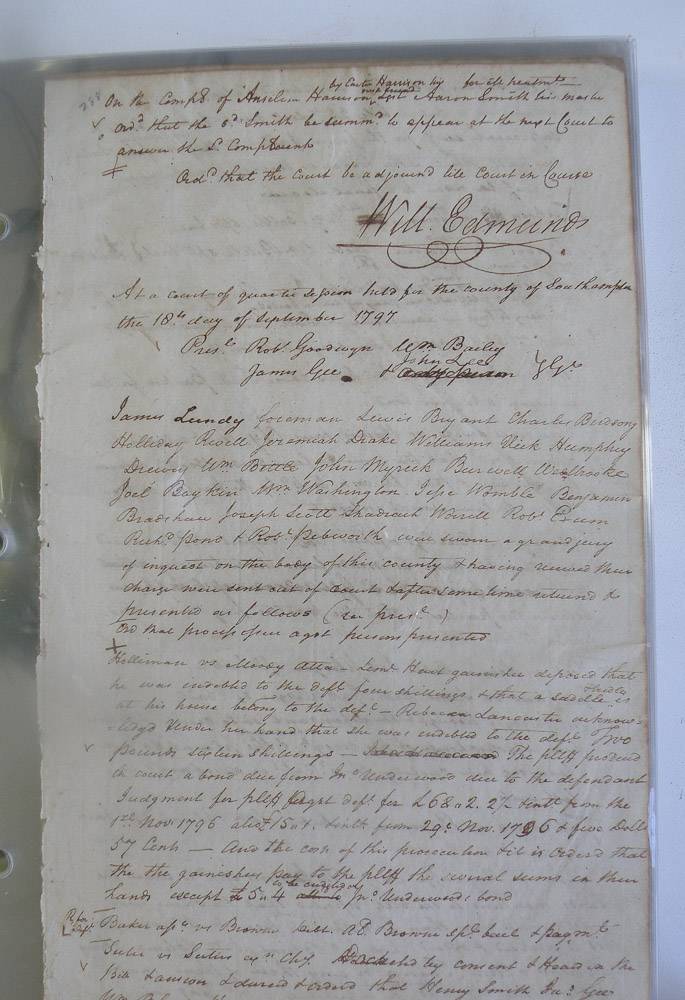 288
by Carter Harrison his next friend for ill treatmt
On the Compt. of Anselm Harrison agst Aaron Smith his master
ord. that the sd. Smith be summd. to appear at the next Court to
answer the sd. Complaint
Ord. that the Court be adjournd till Court in Course
Will. Edmunds
At a court of quarter session held for the county of Southampton
the 18th day of September 1797
Prest. Robt. Goodwyn Wm Bailey
John Lee
James Gee & Gt.
James Lundy foreman Lewis Bryant Charles Birdsong
Holliday Revell Jeremiah Drake Williams Vick Humphrey
Drewry Wm Bottle John Myrick Burwell Westbrooke
Joel Boykin Wm Washington Jesse Womble Benjamin
Bradshaw Joseph Scott Shadrach Worrell Robt. Exum
Richd. Pond & Robt. Pebworth were sworn a grand jury
of inquest on the body of this county & having received their
charge were sent out of court & after some time returnd &
presented as follows (see prest.)
Ord that process issue agst persons presented
Holliman vs Moody Atta - Garnishee deposed that
he was indebted to the deft four shillings & that a saddle & bridle is
at his house belong to the deft. - Rebecca Lancaster acknow-
ledgd under her hand that she was indebted to the deft. Two
pounds sixteen shillings - The pltff producd
in court a bond due from Jno Underwood due to the defendant
Judgment for pltff agst deft. for £6 2. 2½ intt from the
1st Nov. 1796 also 15 intt. from 29t Nov. 1796 & five Dolls
57 Cents - And the costs of this prosecution & it is orderd that
the the garnishees pay to the pltff the several sums in their
to be credited on
hands except 5 4 Jno. Underwoods bond
Baker asse. vs Browne Debt. Browne spl. bail & paymt.
Suter vs Suters exrs Chy. by consent & Heard on the
Bill & answer & decreed & orderd that Henry Smith